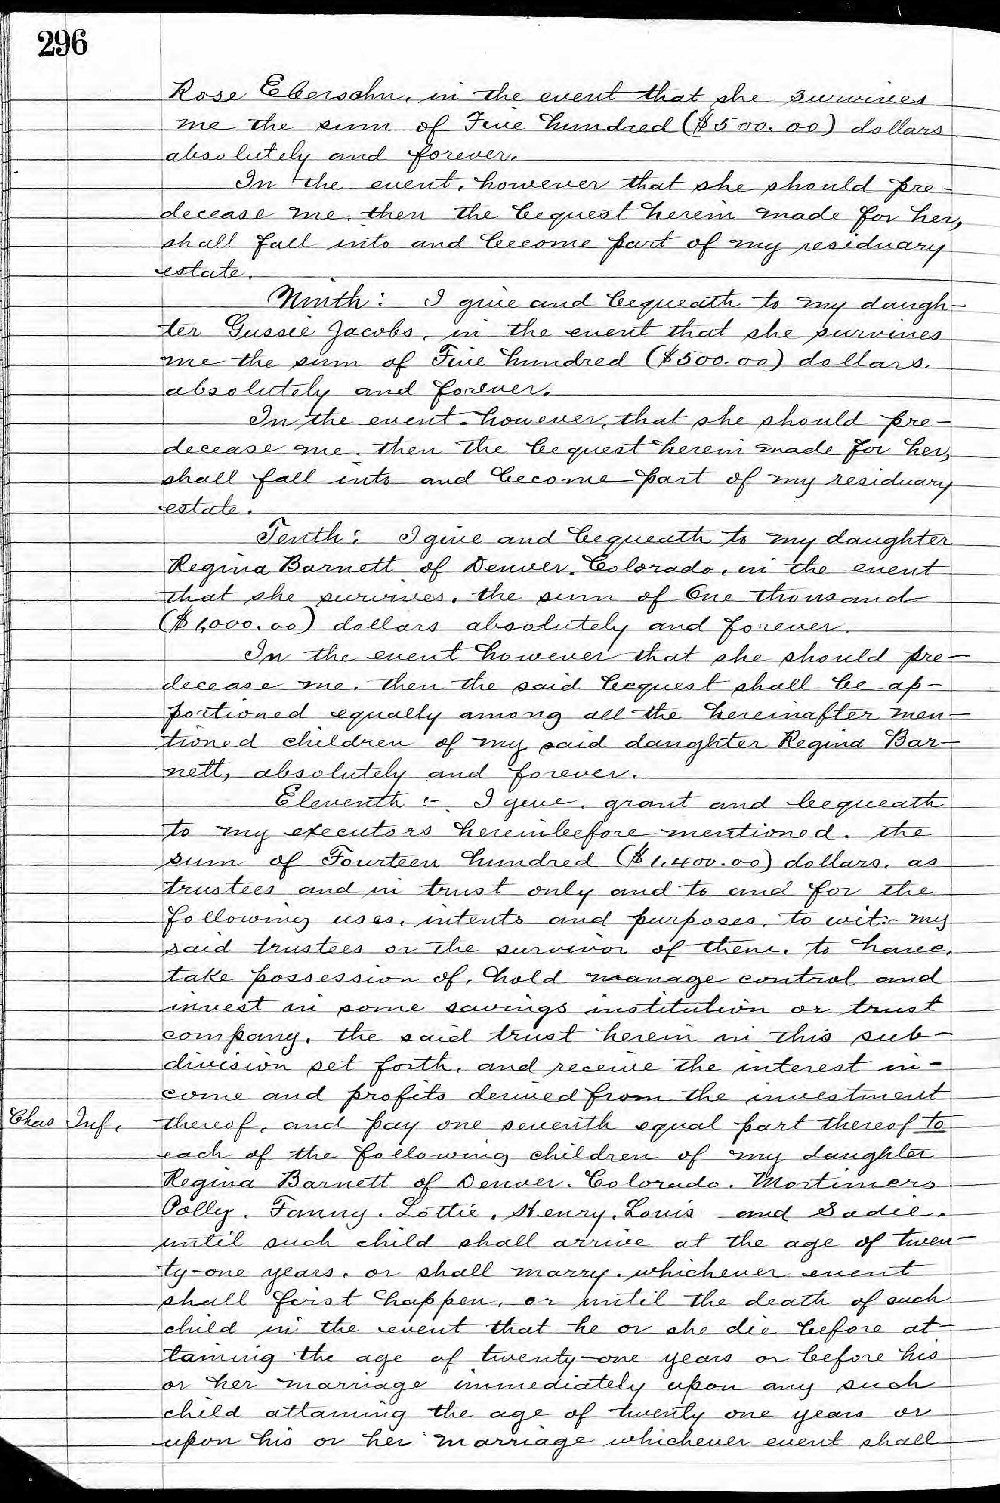 296
Rose Ebersohn, in the event that she survives
me the sum of Five hundred ($500.00) dollars
absolutely and forever.
In the event, however that she should pre-
decease me, then the bequest herein made for her,
shall fall into and become part of my residuary
estate.
Ninth: I give and bequeath to my daugh-
ter Gussie Jacobs, in the event that she survives
me the sum of Five hundred ($500.00) dollars.
absolutely and forever.
In the event however, that she should pre-
decease me, then the bequest herein made for her,
shall fall into and become part of my residuary
estate.
Tenth: I give and bequeath to my daughter
Regina Barnett of Denver, Colorado, in the event
that she survives, the sum of One thousand
($1,000.00) dollars absolutely and forever.
In the event however that she should pre-
decease me, then the said bequest shall be ap-
portioned equally among all the hereinafter men-
tioned children of my said daughter Regina Bar-
nett, absolutely and forever.
Eleventh :- I give, grant and bequeath
to my executors hereinbefore mentioned, the
sum of Fourteen hundred ($1,400.00) dollars, as
trustees and in trust only and to and for the
following uses, intents and purposes, to wit: my
said trustees or the survivor of them, to have,
take possession of, hold manage control and
invest in some savings institution or trust
company, the said trust herein in this sub-
division set forth, and receive the interest in-
come and profits derived from the investment
Chas Inf, thereof, and pay one seventh equal part thereof to
each of the following children of my daughter
Regina Barnett of Denver, Colorado. Mortimers
Polly, Fanny, Lottie, Henry, Louis and Sadie,
until such child shall arrive at the age of twen-
ty-one years, or shall marry, whichever event
shall first happen, or until the death of such
child in the event that he or she die before at-
taining the age of twenty-one years or before his
or her marriage immediately upon any such
child attaining the age of twenty one years or
upon his or her marriage whichever event shall